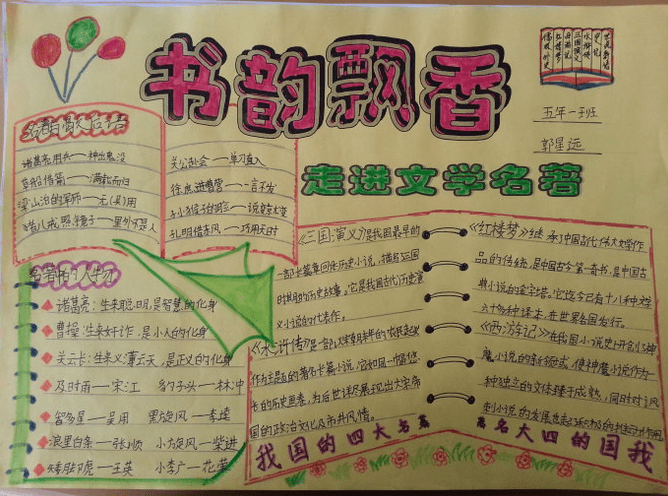 书韵飘香
走进文学名著
五年一班
郭星远
名著的歇后语
诸葛亮用兵——神出鬼没
草船借箭——满载而归
梁山泊的军师——无(吴)用
猪八戒照镜子——里外不是人
关公赴会——单刀直入
徐庶进曹营——一言不发
孙猴子的脸——说变就变
孔明借东风——巧用天时
名著中的人物
诸葛亮:生来聪明,是智慧的化身
曹操:生来奸诈,是小人的化身
关云长:生来义薄云天,是正义的化身
及时雨——宋江 豹子头——林冲
智多星——吴用 黑旋风——李逵
浪里白条——张顺 小旋风——柴进
矮脚虎——王英 小李广——花荣
《三国演义》是我国最早的
一部长篇章回体历史小说,描写三国
时期的历史故事。它是我国古代历史演
义小说的代表作。
《水浒传》是一部以农民起义
作为主题的著名长篇小说,它如同一幅悠
长的历史画卷,为后世详尽展现出大宋帝
国的政治文化及市井风情。
我国的四大名著
《红楼梦》继承了中国古代伟大文学作
品的传统,是中国古今第一奇书,是中国古
典小说的金字塔。它迄今已有十八种文字
六十多种译本,在世界各国发行。
《西游记》在我国小说史上开创了神
魔小说的新领域,使神魔小说作为
一种独立的文体臻于成熟,同时对讽
刺小说的发展也起了积极的
著名大四的国我